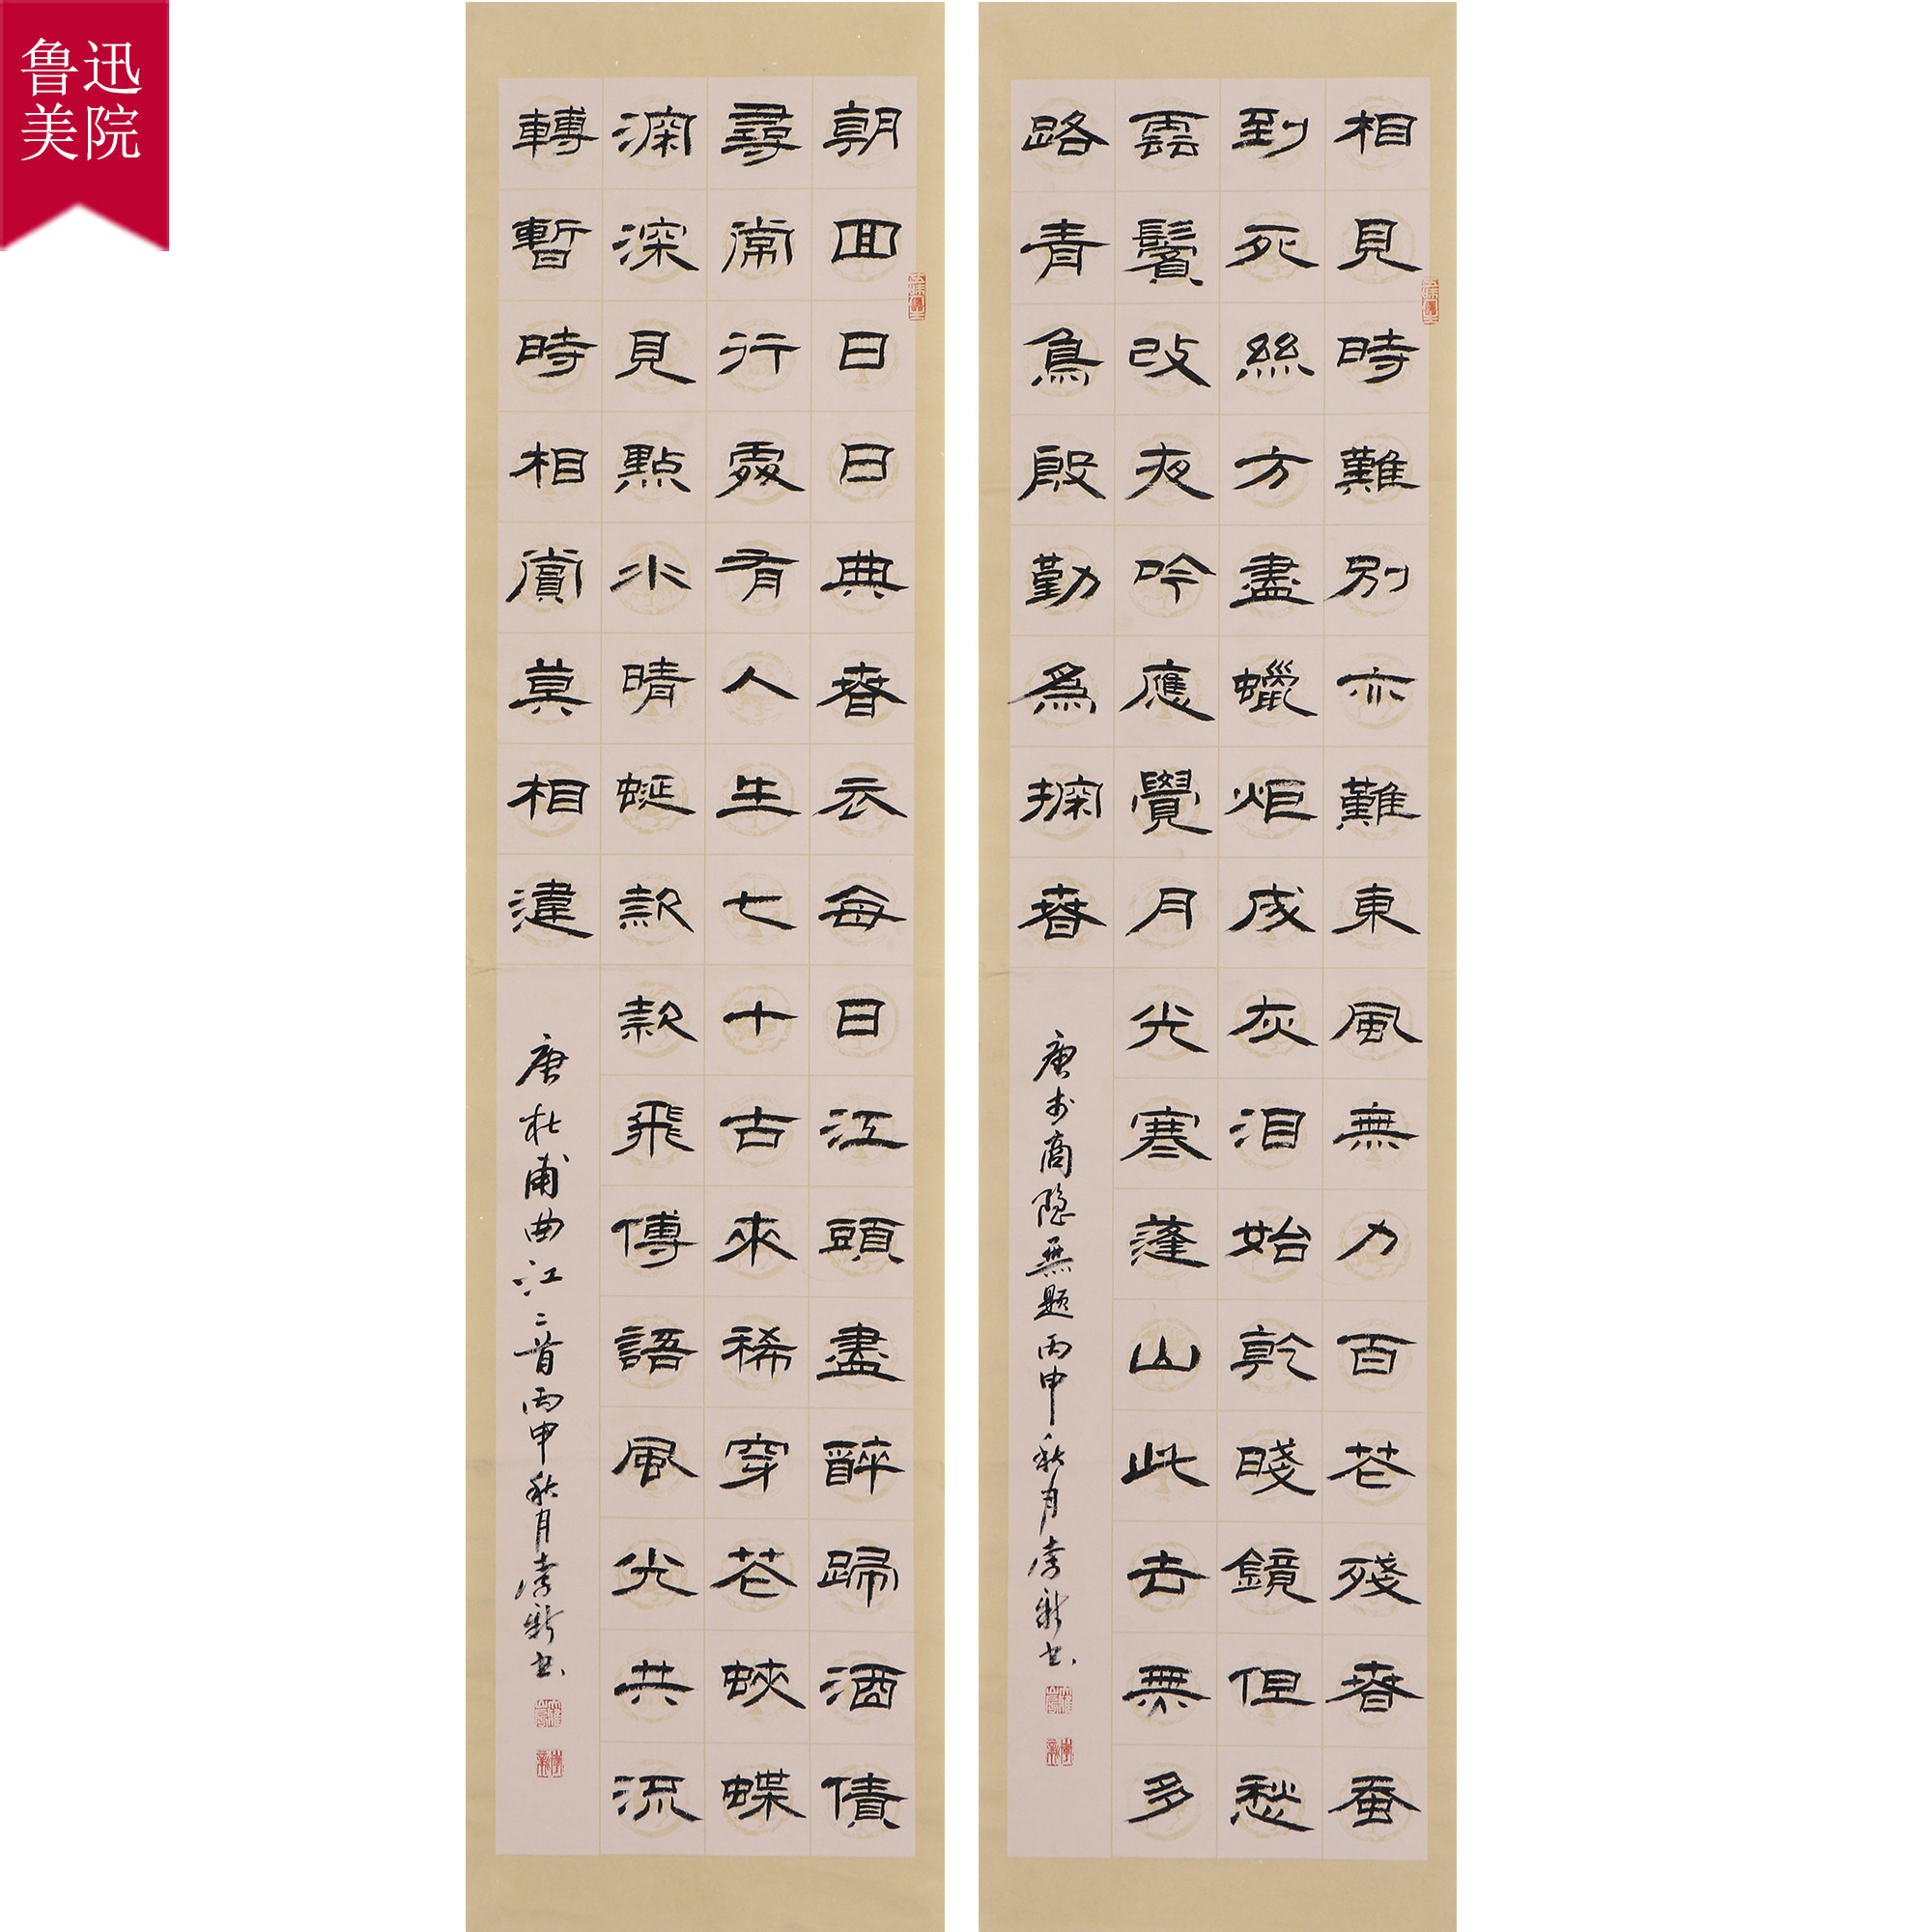 鲁迅
美院
相見時難別亦難東風無力百花殘春蚕
到死絲方盡蠟炬成灰泪始乾曉鏡但愁
雲鬢改夜吟應覺月光寒蓬山此去無多
路青鳥殷勤為探春
唐李商隐無題丙申秋月李新书
朝回日日典春衣每日江頭盡醉歸酒債
尋常行處有人生七十古來稀穿花蛺蝶
深深見點水晴蜓款款飛傳語風光共流
轉暫時相賞莫相違
唐杜甫曲江二首丙申秋月李新书